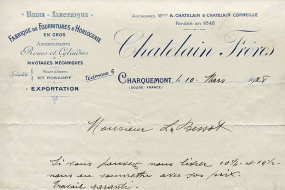 Usine Electrique
Fabrique de Fournitures d'Horlogerie
EN GROS
Assortiments
Roues et Cylindres
PIVOTAGES MÉCANIQUES
Spécialité
Remontoirs
EXPORTATION
Anciennes Mons A. CHATELAIN & CHATELAIN CORNEILLE
Fondée en 1848
Chatelain Frères
Téléphone 6
CHARQUEMONT, le 10 Mars 1928
(DOUBS - FRANCE)
Monsieur L.
Si vous pouvez nous livrer 10½ et
nous en soumettre avec vos prix.
Travail garanti.